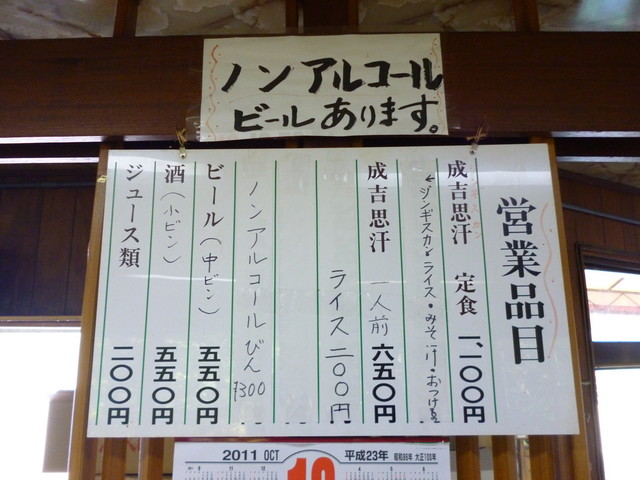 ノンアルコール
ビールあります。
営業品目
成吉思汗 定食 一、一〇〇円
ジンギスカン・ライス・みそ汁・おつけもの
成吉思汗 一人前 六五〇円
ライス 二〇〇円
ノンアルコールびん ¥300
ビール(中ビン) 五五〇円
酒(小ビン) 五五〇円
ジュース類 二〇〇円
2011 OCT 10 平成23年 昭和86年 大正100年